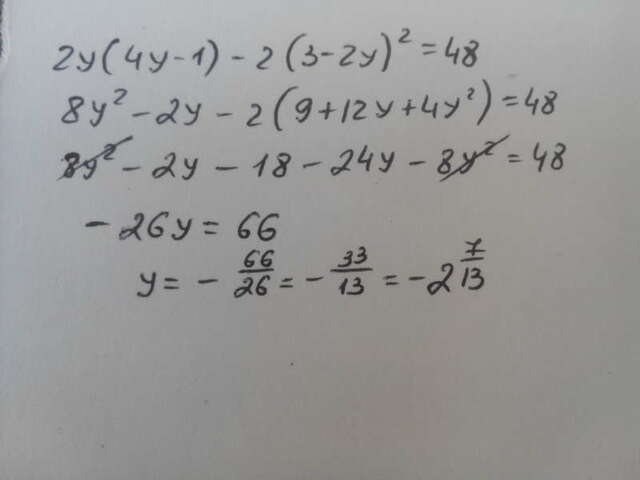 2y(4y-1) - 2(3-2y)² = 48
8y² - 2y - 2(9+12y+4y²) = 48
8y² - 2y - 18 - 24y - 8y² = 48
- 26y = 66
y = - 66/26 = - 33/13 = - 2 7/13